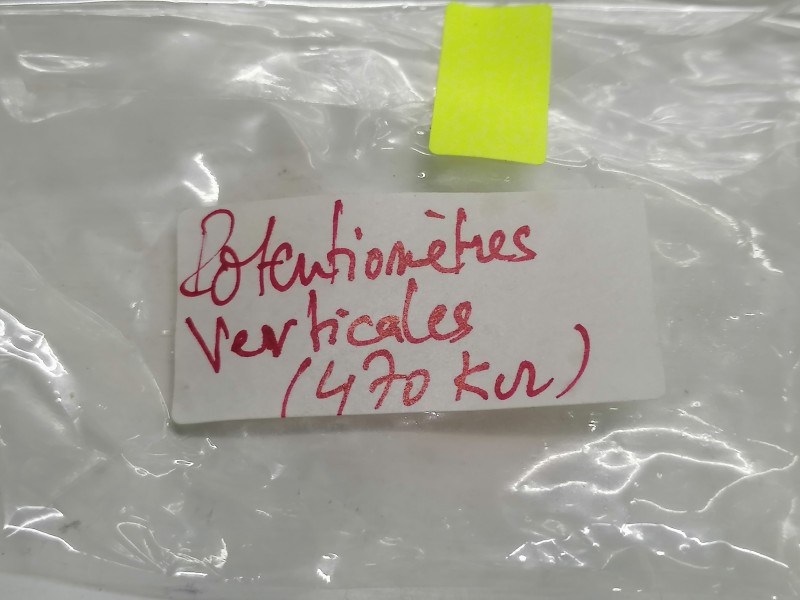 Potentiomètres
verticales
(470 KΩ)